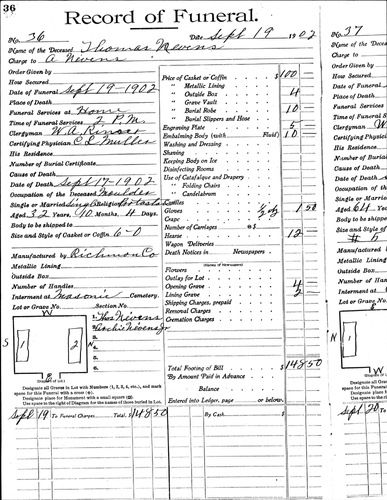 36
Record of Funeral.
No. 36 Date Sept 19 1902
Name of the Deceased Thomas Nevens
Charge to A Nevens
Order Given by
How Secured
Date of Funeral Sept-19-1902
Place of Death
Funeral Services at Home
Time of Funeral Services 2 P.M.
Clergyman W.A.
Certifying Physician C L Muller
His Residence
Number of Burial Certificate
Cause of Death
Date of Death Sept-17-1902
Occupation of the Deceased Moulder
Single or Married Single Religion
Aged 32 Years, 90 Months, 4 Days.
Body to be shipped to
Size and Style of Casket or Coffin 6-0
Manufactured by Richmon Co
Metallic Lining
Outside Box
Number of Handles
Interment at Masonic Cemetery.
Lot or Grave No. Section No.
W
S
1
2
N
E
(Diagram of Lot.)
1. Thos Nevens
2. Archie Nevens Jr
3.
4.
5.
6.
Designate all Graves in Lot with Numbers (1, 2, 3, 4, etc.), and mark
space for this Funeral with a cross (+).
Designate place for Monument with a small square (□).
Use space to the right of Diagram for the names of those buried in Lot.
Price of Casket or Coffin $ 100
" Metallic Lining
" Outside Box 4
" Grave Vault
" Burial Robe 10
" Burial Slippers and Hose
Engraving Plate 5
Embalming Body (with Fluid) 10
Washing and Dressing
Shaving
Keeping Body on Ice
Disinfecting Rooms
Use of Catafalque and Drapery
" Folding Chairs
" Candelabrum
Gloves 1/2 dz 1 50
Crape
Number of Carriages @ $
Hearse 12
Wagon Deliveries
Death Notices in Newspapers
(Names of Newspapers)
Flowers
Outlay for Lot
Opening Grave 4
Lining Grave 2
Shipping Charges, prepaid
Removal Charges
Cremation Charges
Total Footing of Bill $ 148 50
By Amount Paid in Advance
Balance
Entered into Ledger, page or below.
Sept 19 To Funeral Charges Total, $ 148 50
By Cash $
37
No. 37
Name of the
Charge to
Order Given
How Secured
Date of Fun
Place of De
Funeral Ser
Time of Fun
Clergyman
Certifying
His Resid
Number of
Cause of De
Date of Deat
Occupation
Single or M
Aged 64 Year
Body to be s
Size and Sty
Manufactur
Metallic Li
Outside Box
Number of
Interment
Lot or Grav
S
Sept 20 To